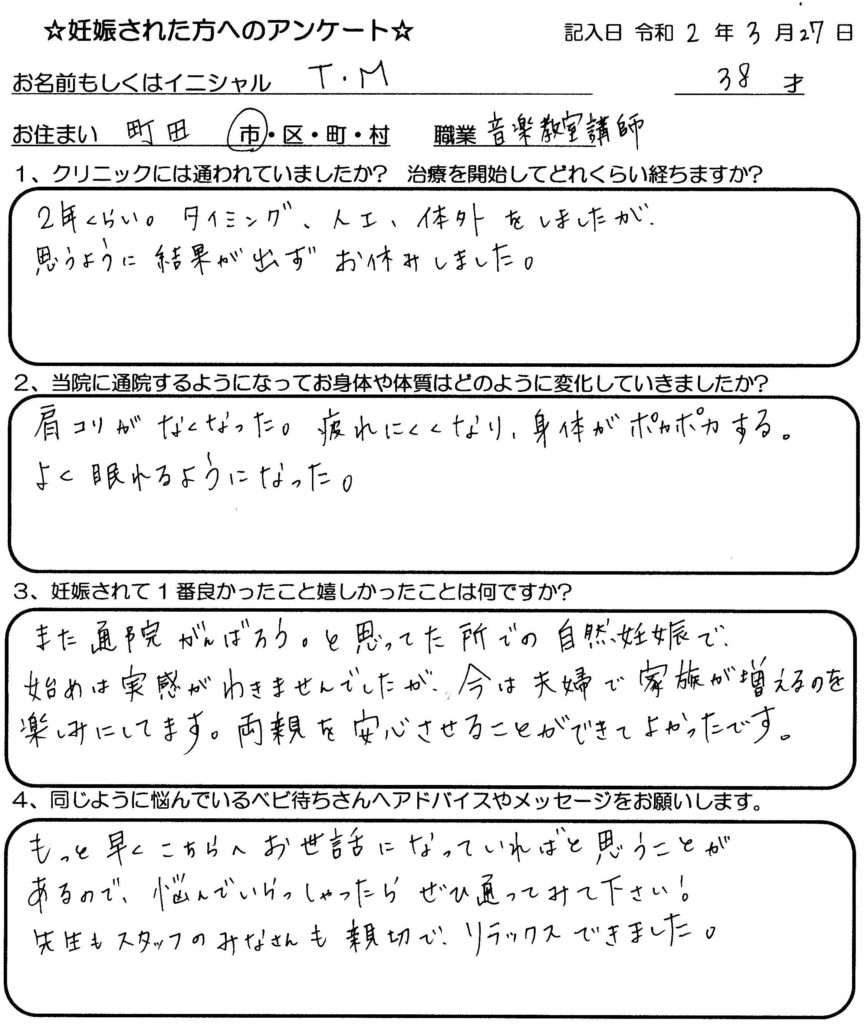 ☆妊娠された方へのアンケート☆ 記入日 令和 2 年 3 月 27 日
お名前もしくはイニシャル T・M 38 才
お住まい 町田 市・区・町・村 職業 音楽教室講師
1、クリニックには通われていましたか? 治療を開始してどれくらい経ちますか?
2年くらい。タイミング、人工、体外をしましたが、
思うように結果が出ずお休みしました。
2、当院に通院するようになってお身体や体質はどのように変化していきましたか?
肩コリがなくなった。疲れにくくなり、身体がポカポカする。
よく眠れるようになった。
3、妊娠されて1番良かったこと嬉しかったことは何ですか?
また通院がんばろう。と思ってた所での自然妊娠で、
始めは実感がわきませんでしたが、今は夫婦で家族が増えるのを
楽しみにしてます。両親を安心させることができてよかったです。
4、同じように悩んでいるベビ待ちさんへアドバイスやメッセージをお願いします。
もっと早くこちらへお世話になっていればと思うことが
あるので、悩んでいらっしゃったらぜひ通ってみて下さい!
先生もスタッフのみなさんも親切で、リラックスできました。